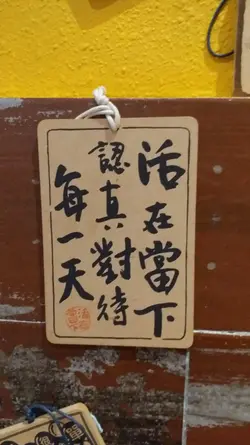 活在當下
認真對待
每一天